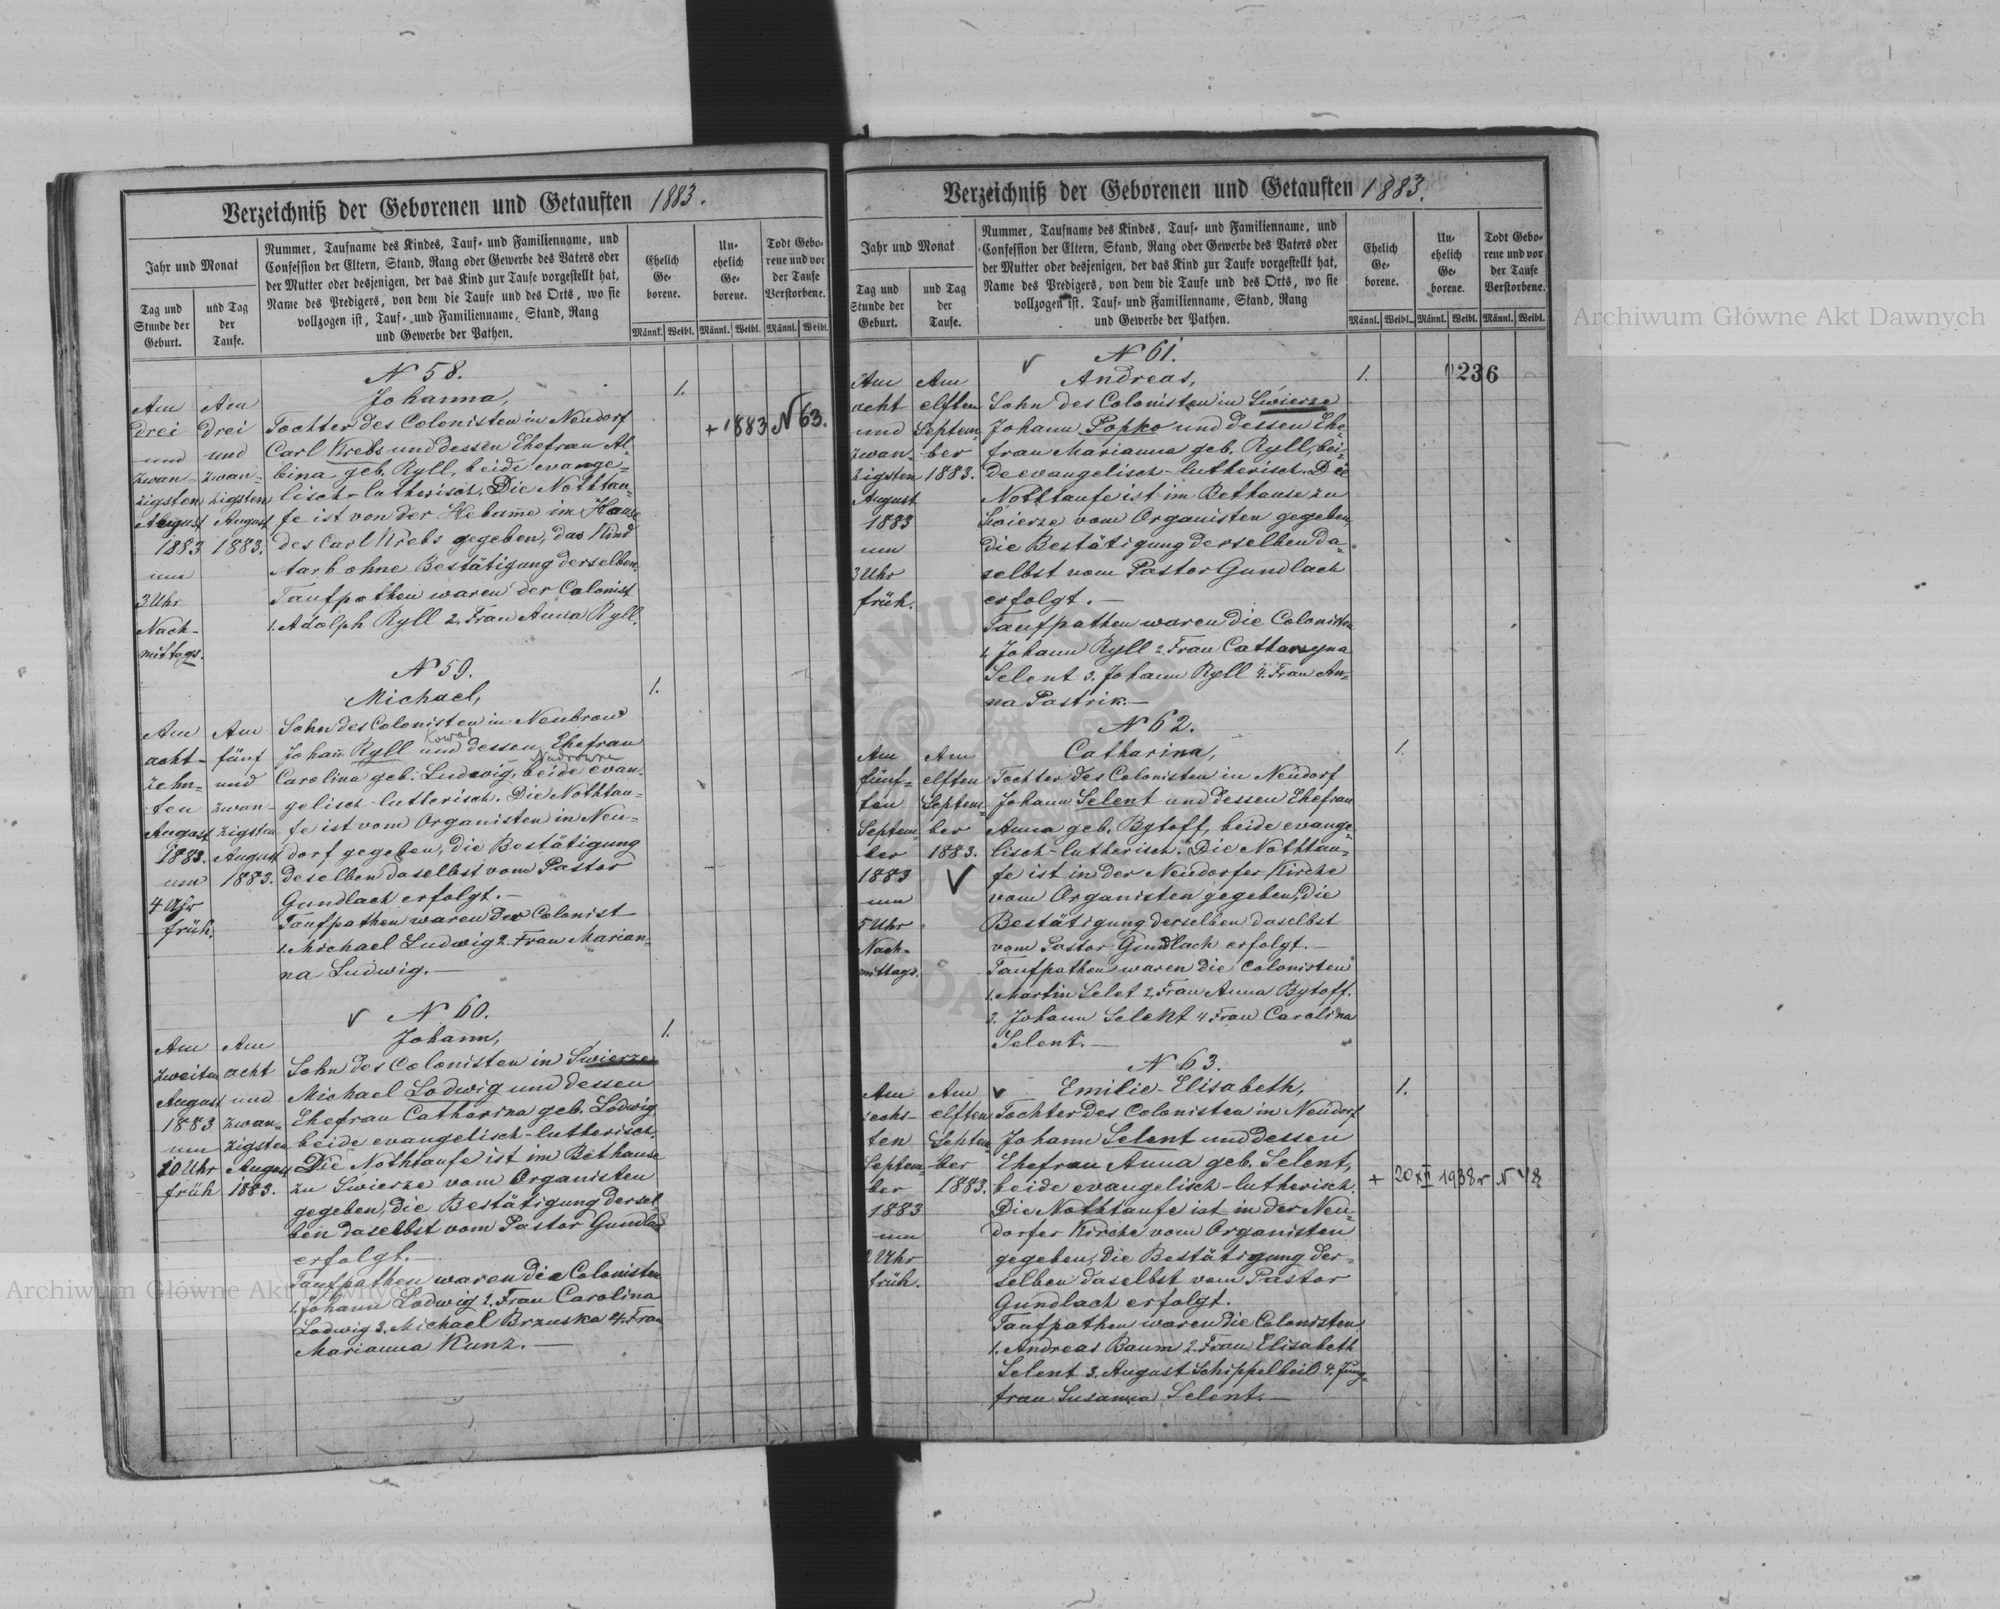 Verzeichniß der Geborenen und Getauften 1883.
Jahr und Monat
Tag und Stunde der Geburt.
und Tag der Taufe.
Nummer, Taufname des Kindes, Tauf- und Familienname, und
Confession der Eltern, Stand, Rang oder Gewerbe des Vaters oder
der Mutter oder desjenigen, der das Kind zur Taufe vorgestellt hat,
Name des Predigers, von dem die Taufe und des Orts, wo sie
vollzogen ist, Tauf- und Familienname, Stand, Rang
und Gewerbe der Pathen.
Ehelich Ge- borene.
Un- ehelich Ge- borene.
Todt Gebo- rene und vor der Taufe Verstorbene.
Männl. Weibl. Männl. Weibl. Männl. Weibl.
N 58.
Johanna, 1.
Am Am Tochter des Colonisten in Neudorf + 1883 N 63.
drei drei Carl Krebs und dessen Ehefrau Al-
und und bina geb. Ryll, beide evange-
zwan- zwan- lisch-lutherisch. Die Nothtau-
zigsten zigsten fe ist von der Hebame im Hause
August August des Carl Krebs gegeben, das Kind
1883 1883. starb ohne Bestätigung derselben.
um Taufpathen waren der Colonist
3 Uhr 1. Adolph Ryll 2. Frau Anna Ryll.
Nach-
mittags.
N 59.
Michael, 1.
Am Am Sohn des Colonisten in Neubrow
Kowal
acht- fünf Johan Ryll und dessen Ehefrau
zehn- und Carolina geb. Ludwig, beide evan-
ten zwan- gelisch-lutherisch. Die Nothtau-
August zigsten fe ist vom Organisten in Neu-
1883. August dorf gegeben, die Bestätigung
um 1883. deselben daselbst vom Pastor
4 Uhr Gundlach erfolgt.—
früh. Taufpathen waren der Colonist
1. Michael Ludwig 2. Frau Marian-
na Ludwig.—
✓ N 60.
Johann, 1.
Am Am Sohn des Colonisten in Swierze
zweiten acht Michael Lodwig und dessen
August und Ehefrau Catharina geb. Lodwig
1883 zwan- beide evangelisch-lutherisch.
um zigsten Die Nothtaufe ist im Bethause
10 Uhr August zu Swierze vom Organisten
früh 1883. gegeben, die Bestätigung dersel-
ben daselbst vom Pastor Gundlach
erfolgt.—
Taufpathen waren die Colonisten
1. Johann Lodwig 2. Frau Carolina
Lodwig 3. Michael Brzuska 4. Frau
Marianna Kunz.—
Verzeichniß der Geborenen und Getauften 1883.
Jahr und Monat
Tag und Stunde der Geburt.
und Tag der Taufe.
Nummer, Taufname des Kindes, Tauf- und Familienname, und
Confession der Eltern, Stand, Rang oder Gewerbe des Vaters oder
der Mutter oder desjenigen, der das Kind zur Taufe vorgestellt hat,
Name des Predigers, von dem die Taufe und des Orts, wo sie
vollzogen ist, Tauf- und Familienname, Stand, Rang
und Gewerbe der Pathen.
Ehelich Ge- borene.
Un- ehelich Ge- borene.
Todt Gebo- rene und vor der Taufe Verstorbene.
Männl. Weibl. Männl. Weibl. Männl. Weibl.
✓ N 61.
Am Am Andreas, 1. 236
acht elften Sohn des Colonisten in Swierze
und Septem- Johann Poppo und dessen Ehe-
zwan- ber frau Marianna geb. Ryll, bei-
zigsten 1883. de evangelisch-lutherisch. Die
August Nothtaufe ist im Bethause zu
1883 Swierze vom Organisten gegeben,
um die Bestätigung derselben da-
3 Uhr selbst vom Pastor Gundlach
früh. erfolgt.—
Taufpathen waren die Colonisten
1. Johann Ryll 2. Frau Catharzyna
Selent 3. Johann Ryll 4. Frau An-
na Pastrik.—
N 62.
Am Am Catharina, 1.
fünf- elften Tochter des Colonisten in Neudorf
ten Septem- Johann Selent und dessen Ehefrau
Septem- ber Anna geb. Bytoff, beide evange-
ber 1883. lisch-lutherisch. Die Nothtau-
1883 ✓ fe ist in der Neudorfer Kirche
um vom Organisten gegeben, die
5 Uhr Bestätigung derselben daselbst
Nach- vom Pastor Gundlach erfolgt.—
mittags. Taufpathen waren die Colonisten
1. Martin Selet 2. Frau Anna Bytoff.
3. Johann Selent 4 Frau Carolina
Selent.—
N 63.
Am Am ✓ Emilie-Elisabeth, 1.
sechs- elften Tochter des Colonisten in Neudorf
ten Septem- Johann Selent und dessen
Septem- ber Ehefrau Anna geb. Selent,
ber 1883. beide evangelisch-lutherisch. + 20 XII 1938 r N 48
1883 Die Nothtaufe ist in der Neu-
um dorfer Kirche vom Organisten
2 Uhr gegeben, die Bestätigung der-
früh. selben daselbst vom Pastor
Gundlach erfolgt.
Taufpathen waren die Colonisten
1. Andreas Baum 2. Frau Elisabeth
Selent 3. August Schippelbeil 4. Jung-
frau Susanna Selent.—
Archiwum Główne Akt Dawnych
Archiwum Główne Akt Dawnych